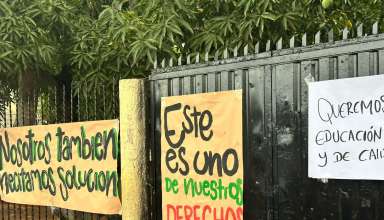 Nosotros también
necesitamos solucion
Este
es uno
de nuestros
DERECHOS
QUEREMOS
EDUCACIÓN
Y DE CALI